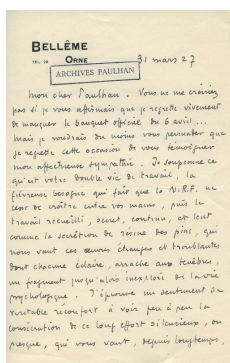 BELLÊME
TEL. 28 ORNE
31 mars 27
ARCHIVES PAULHAN
Mon cher Paulhan. Vous ne me croiriez
pas si je vous affirmais que je regrette vivement
de manquer le banquet officiel du 6 avril...
Mais je voudrais du moins vous persuader que
je regrette cette occasion de vous témoigner
mon affectueuse sympathie. Je soupçonne ce
qu'est votre double vie de travail, la
fiévreuse besogne qui fait que la N.R.F. ne
cesse de croître entre vos mains, puis le
travail recueilli, secret, continu, et lent
comme la sécrétion de résine des pins, qui
nous vaut ces œuvres étranges et troublantes
dont chacune éclaire, arrache aux ténèbres,
un fragment jusqu'alors inexploré de la vie
psychologique. J'éprouve un sentiment de
véritable réconfort à voir peu à peu la
consécration de ce long effort silencieux, ou
presque, qui vous vaut, depuis longtemps,